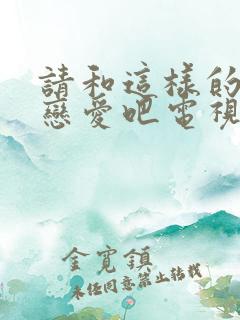 請和這樣的
戀愛吧電視
金寬鎮
未經同意禁止轉載